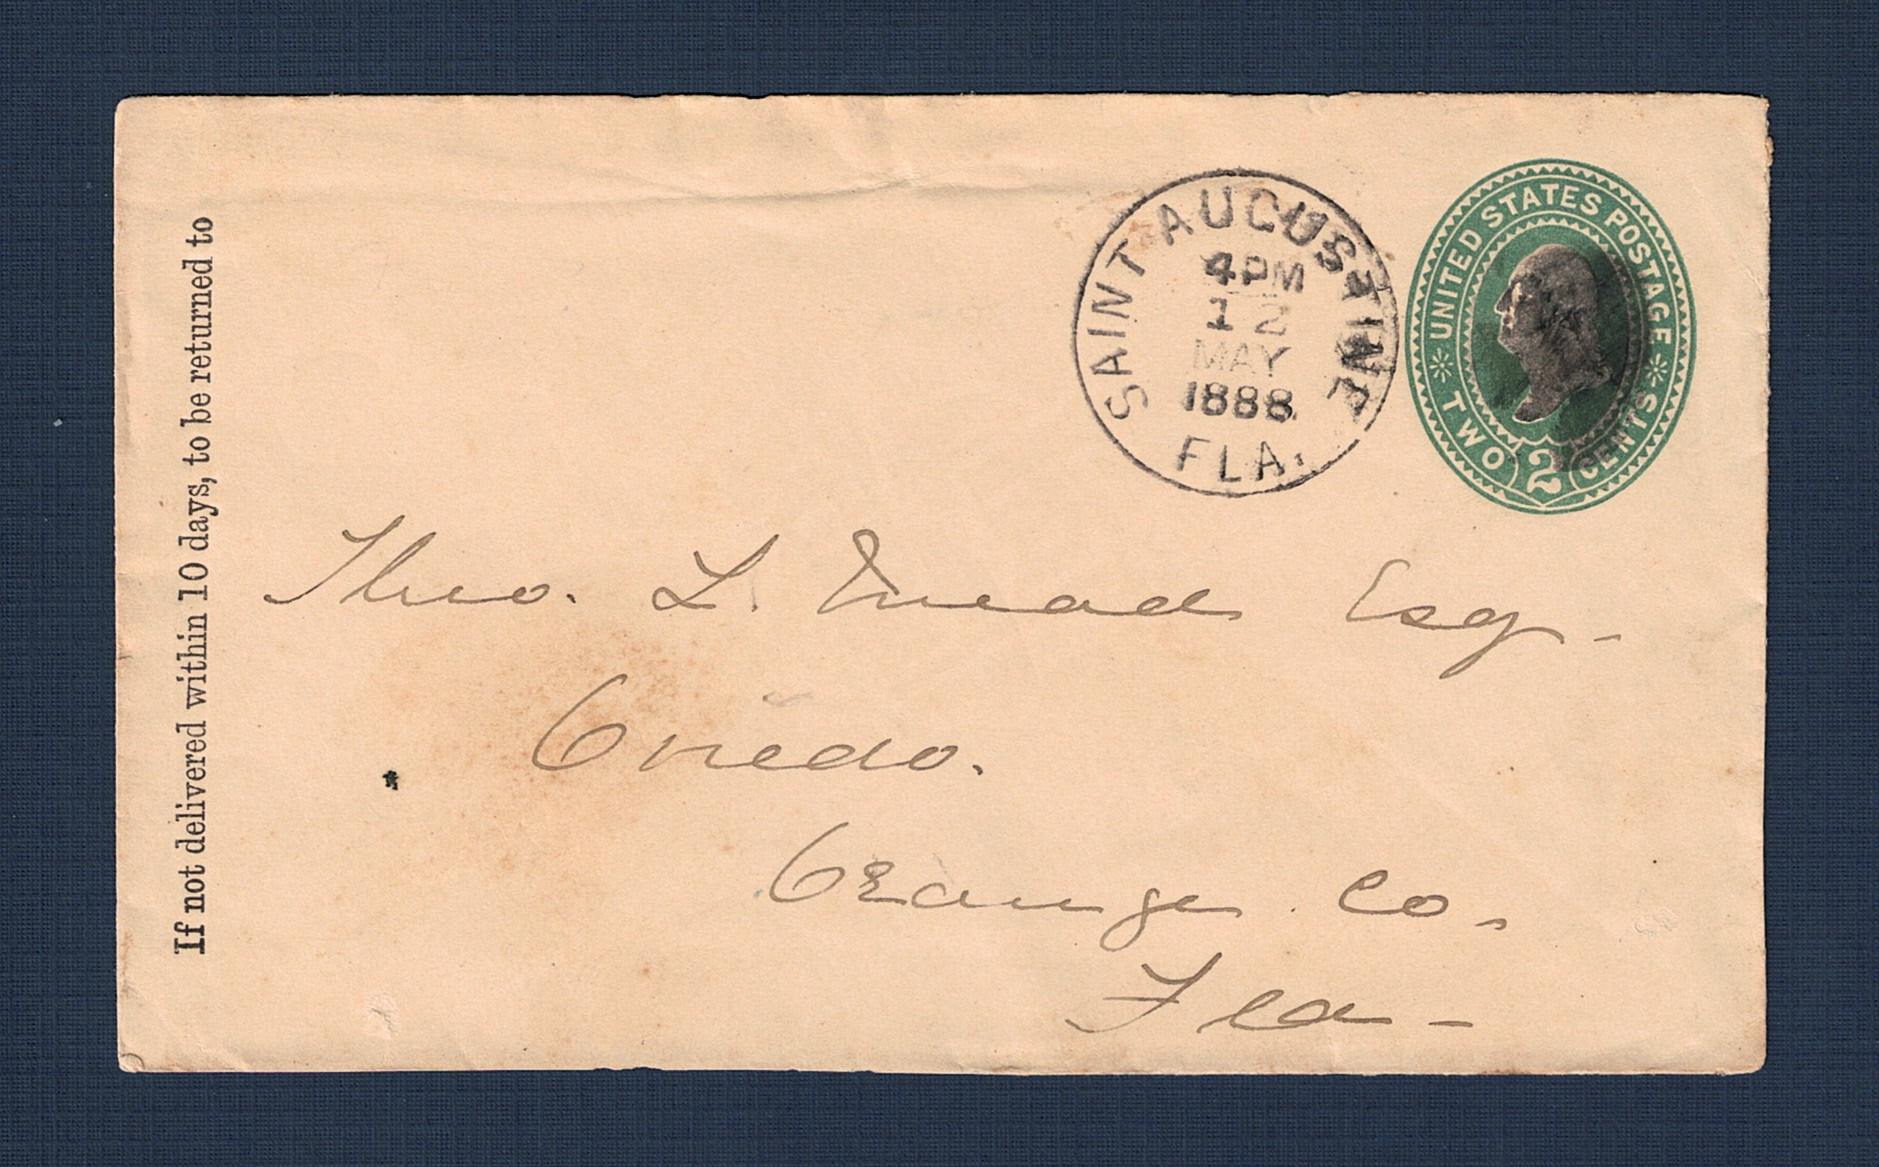 If not delivered within 10 days, to be returned to
SAINT AUGUSTINE
4 PM
12
MAY
1888
FLA.
UNITED STATES POSTAGE
TWO 2 CENTS
Theo. L. Mead Esq.
Oviedo.
Orange Co.
Fla.